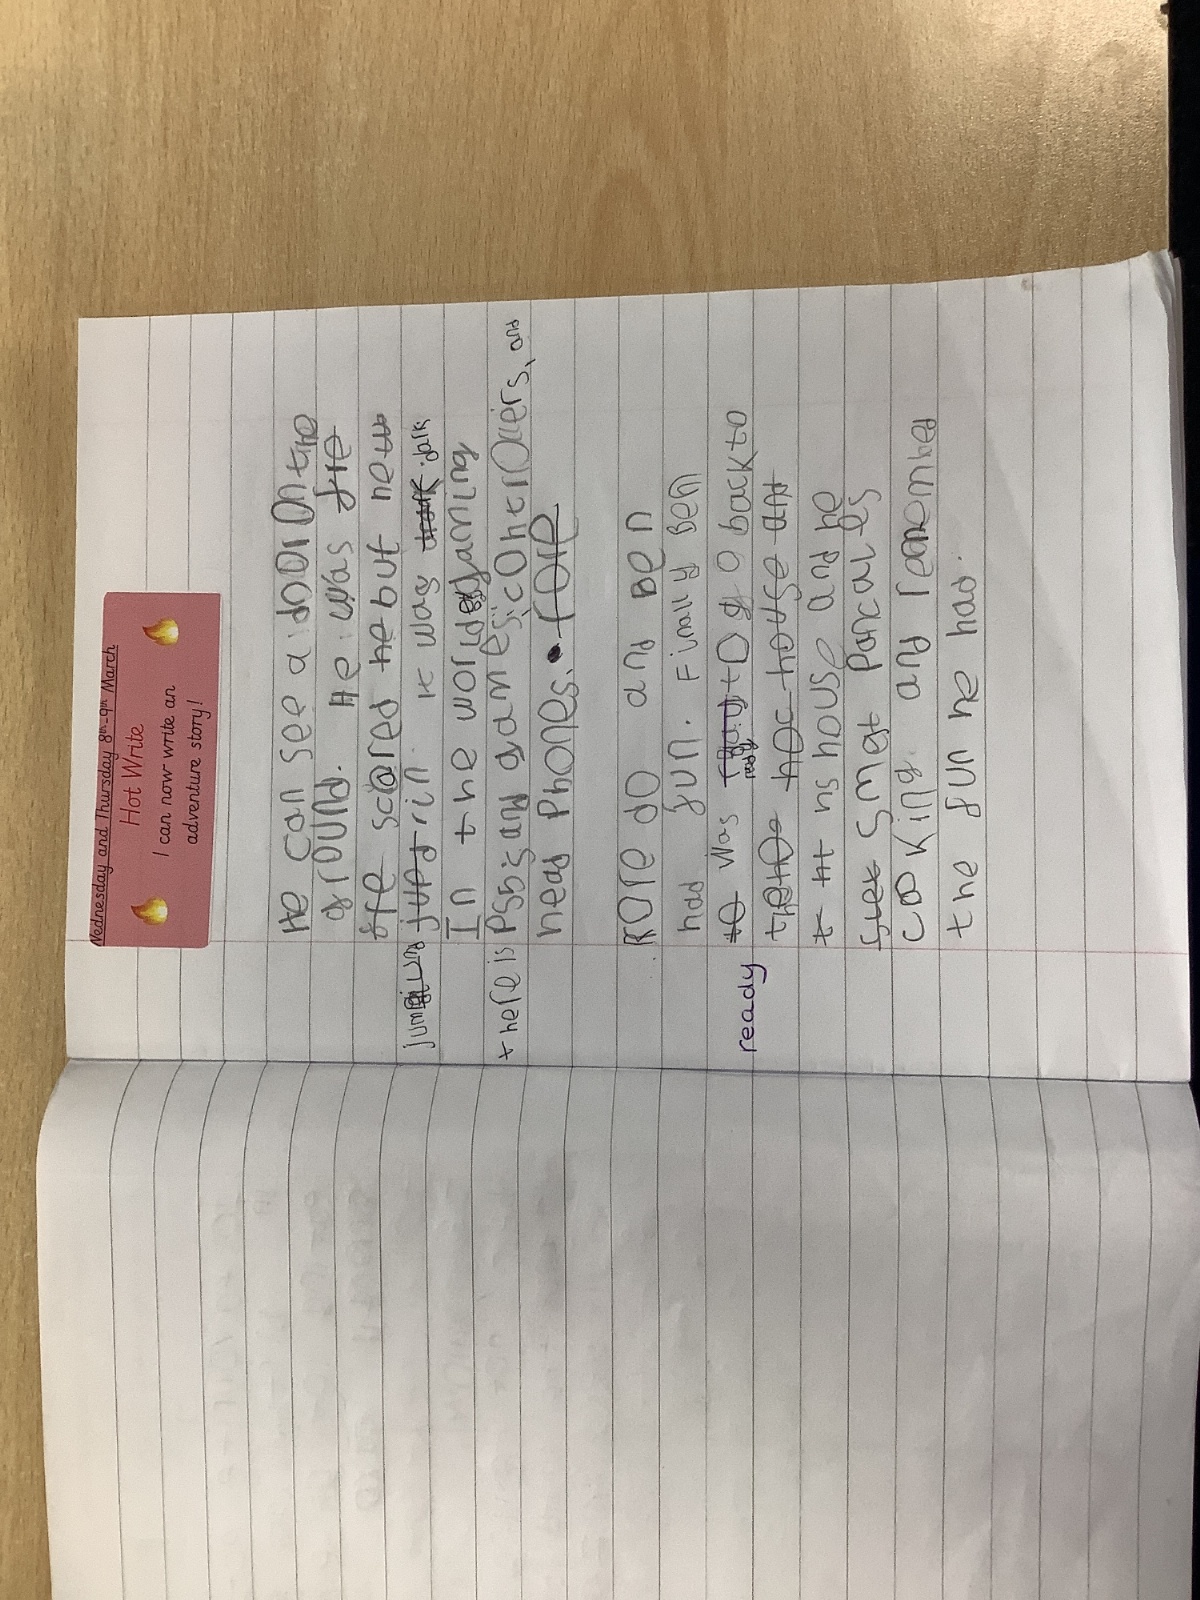 Wednesday and Thursday 8th-9th March
Hot Write
I can now write an
adventure story!
He can see a door On the
ground. He was fre
fre scared he but he
jumped in it was dark dark
In the world gaming
there is PS5s and games, controllers, and
head Phones. fore
Kore do and Ben
had fun. Finally Ben
to was ready to go back to
ready
house and
t ht his house and he
Smet Pancakes
cooking and remembed
the fun he had.